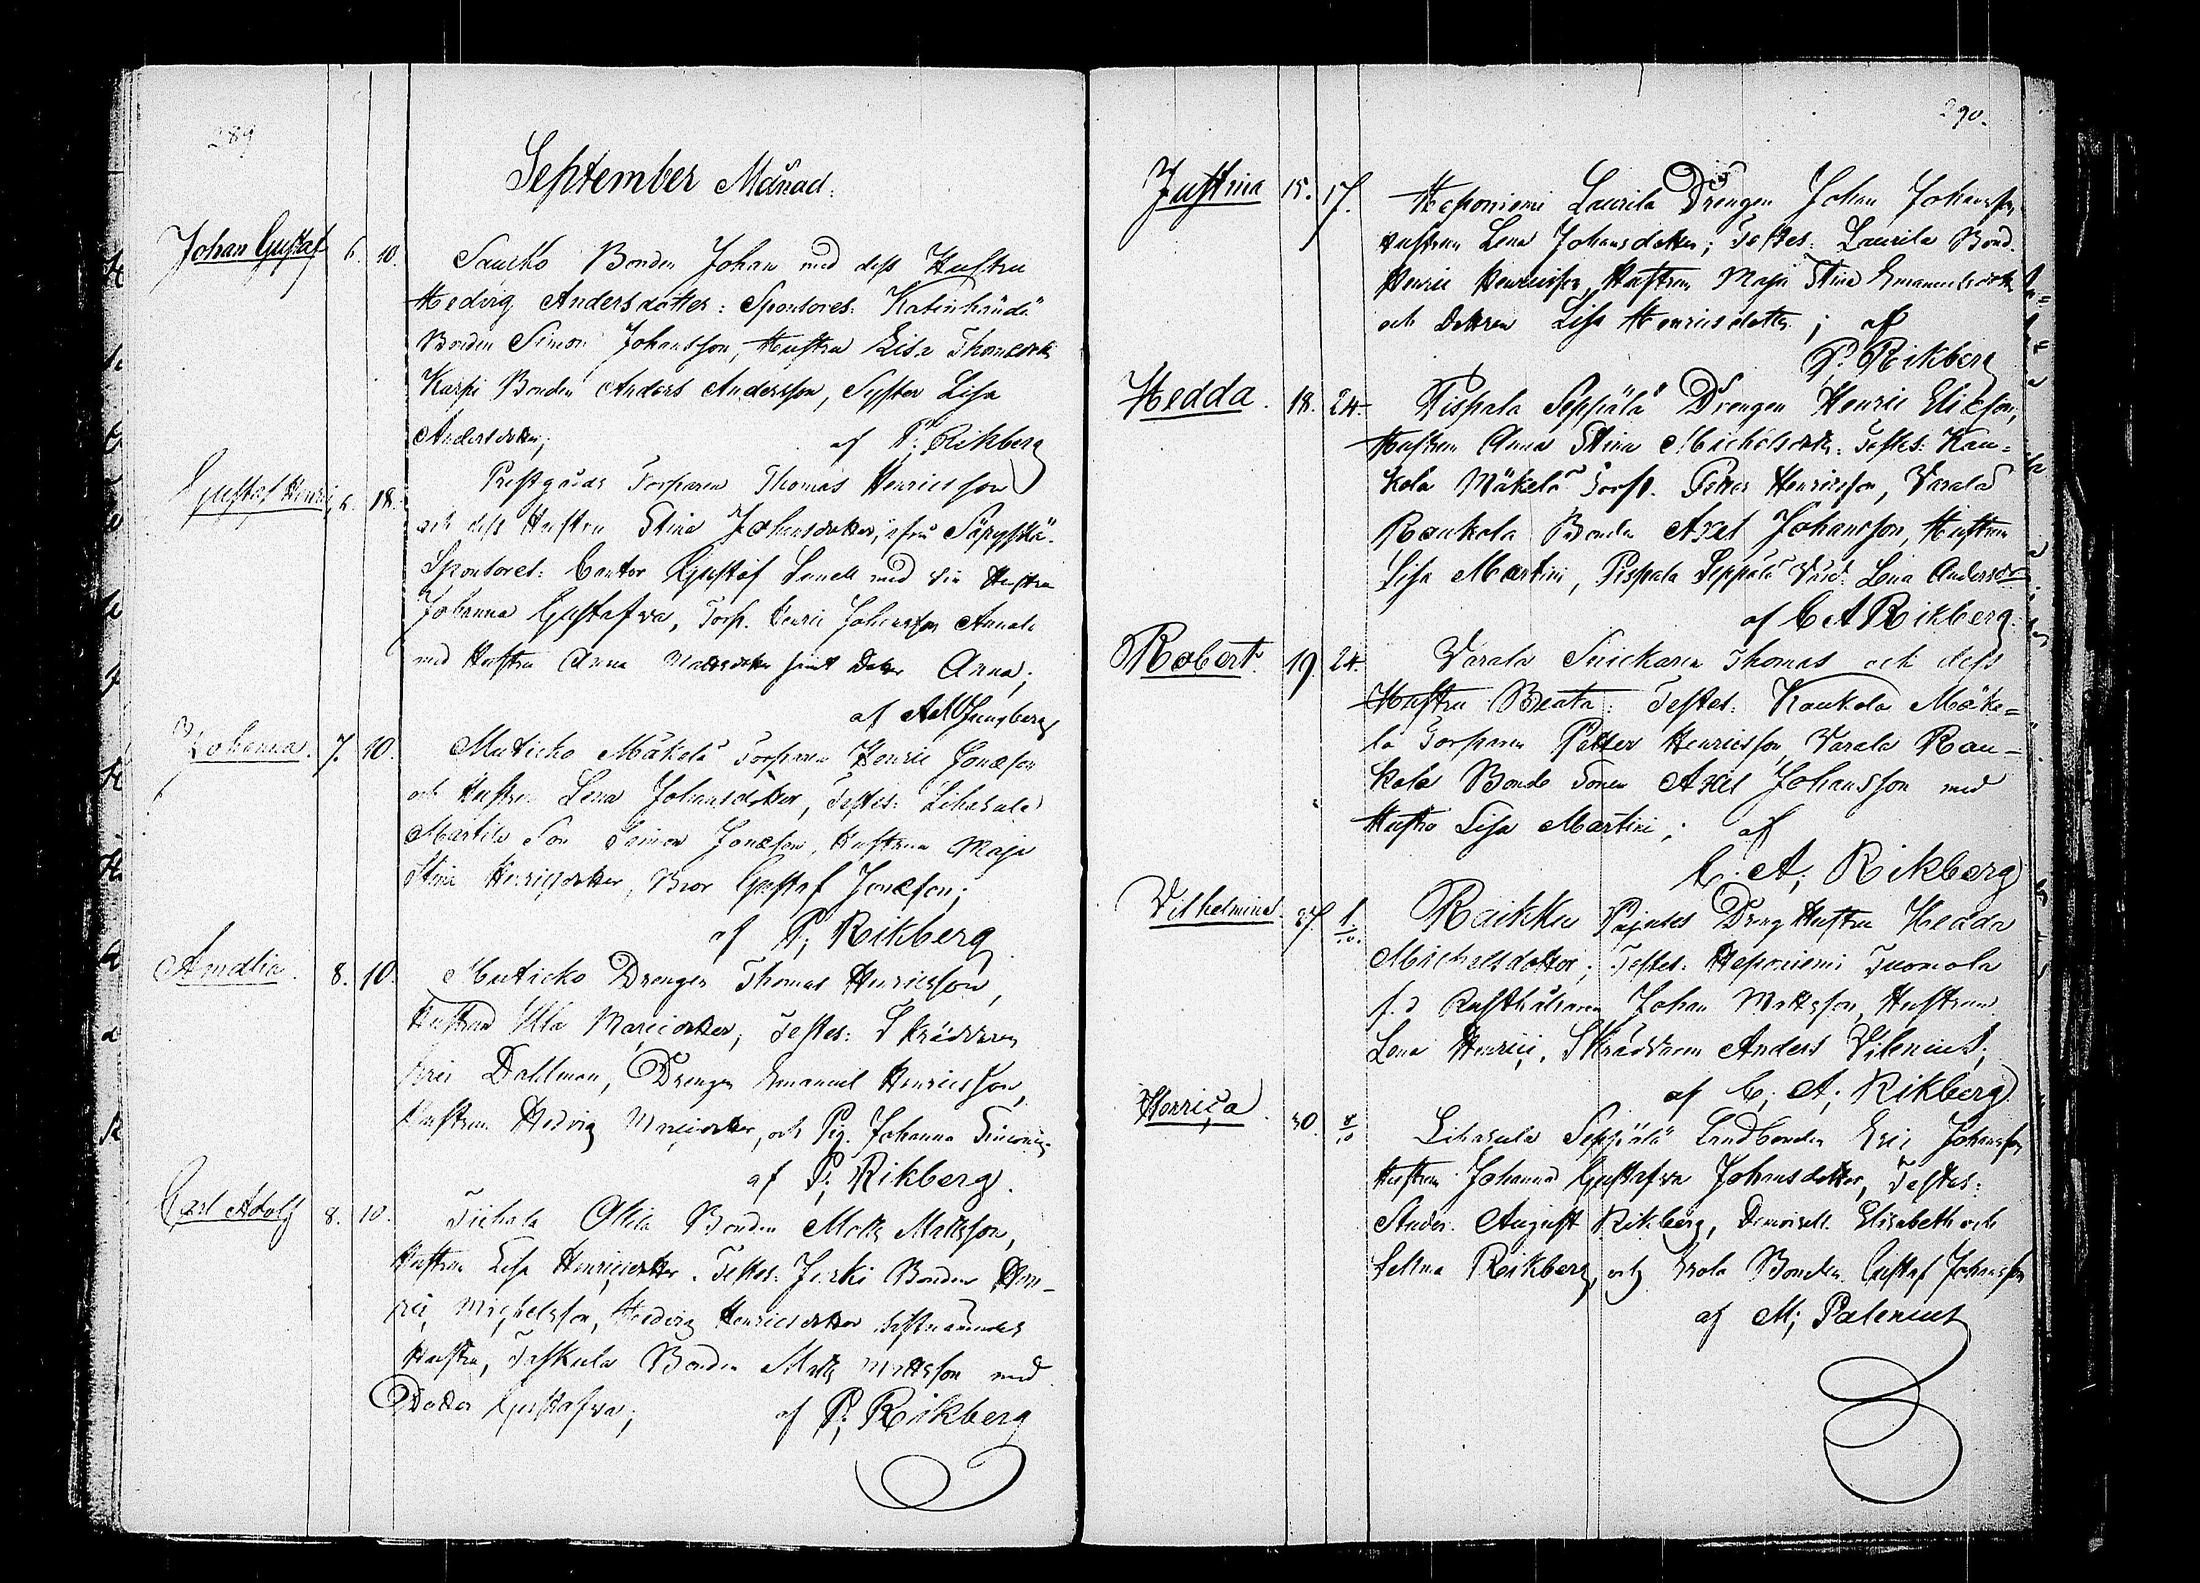 289
September Månad.
Johan Gustaf 6. 10. Saucko Bonden Johan med dess Hustru
Hedvig Andersdotter: Sponsores: Katinhändä
Bonden Simon Johansson, Hustru Lisa Thomedr
Karpi Bonden Anders Andersson, Syster Lisa
Andersdotter; af P. Rikberg
Gustaf Henric 6. 18. Prestgårds Torparen Thomas Henricsson
och dess Hustru Stina Johansdotter, ifrån
Sponsores: Cantor Gustaf med sin Hustru
Johanna Gustafva, Torp. Henric Johansson Annala
med Hustru Anna Mattsdotter samt Dotter Anna;
af
Johanna. 7. 10. Muticko Mäkelä Torparen Henric Jonæson
och Hustru Lena Johansdotter, Testes: Lihasula
Martila Son Simon Jonæson, Hustrun Maja
Stina Henricsdotter, Bror Gustaf Jonæson;
af P; Rikberg
Amalia. 8. 10. Muticko Drengen Thomas Henricsson,
Hustrun Ulla Maricidotter; Testes: Skräddaren
Eric Dahlman, Drengen Emanuel Henricsson,
Hustrun Hedvig Maricidotter, och Pig. Johanna
af P; Rikberg.
Carl Adolf 8. 10. Tichala Ollila Bonden Matts Mattsson,
Hustrun Lisa Henricidotter. Testes: Jerki Bonden Hen-
ric Michelsson, Hedvig Henricsdotter
Hustru, Taskula Bonden Matts Mattsson med
Dotter Gustafva; af P; Rikberg
290.
Justina 15. 17. Haponiemi Laurila Drengen Johan Johansson
Hustrun Lena Johansdotter; Testes: Laurila Bond.
Henric Henricsson, Hustrun Maja Stina Emanuelsdotter
och Dottren Lisa Henricsdotter; af
P. Rikberg
Hedda. 18. 24. Pispala Seppälä Drengen Henric Ericson,
Hustrun Anna Stina Michelsdotter. Testes: Kau-
kola Mäkelä Torp. Petter Henricsson, Varala
Raukola Bonden Axel Johansson, Hustrun
Lisa Martini, Pispala Seppälä Värd. Lena Andersdr
af C A Rikberg.
Robert. 19. 24. Varala Snickaren Thomas och dess
Hustru Beata: Testes: Kaukola Mäke-
lä Torparen Petter Henricsson, Varala Rau-
kola Bonde Sonen Axel Johansson med
Hustru Lisa Martini; af
C. A; Rikberg
Vilhelmina. 27. 1/10. Raikku Pajules Dreng Hustru Hedda
Michelsdotter; Testes: Haponiemi Tuomola
f.d Rusthållaren Johan Mattsson, Hustrun
Lena Henrici, Skräddaren Anders Vilenius;
af C; A; Rikberg
Henrica. 30. 8/10 Lihasula Seppälä Landbonden Eric Johansson
Hustrun Johanna Gustafva Johansdotter, Testes:
Studer. August Rikberg, Demoisell. Elisabeth och
Selma Rikberg, och Erola Bonden Gustaf Johansson
af M; Palenius